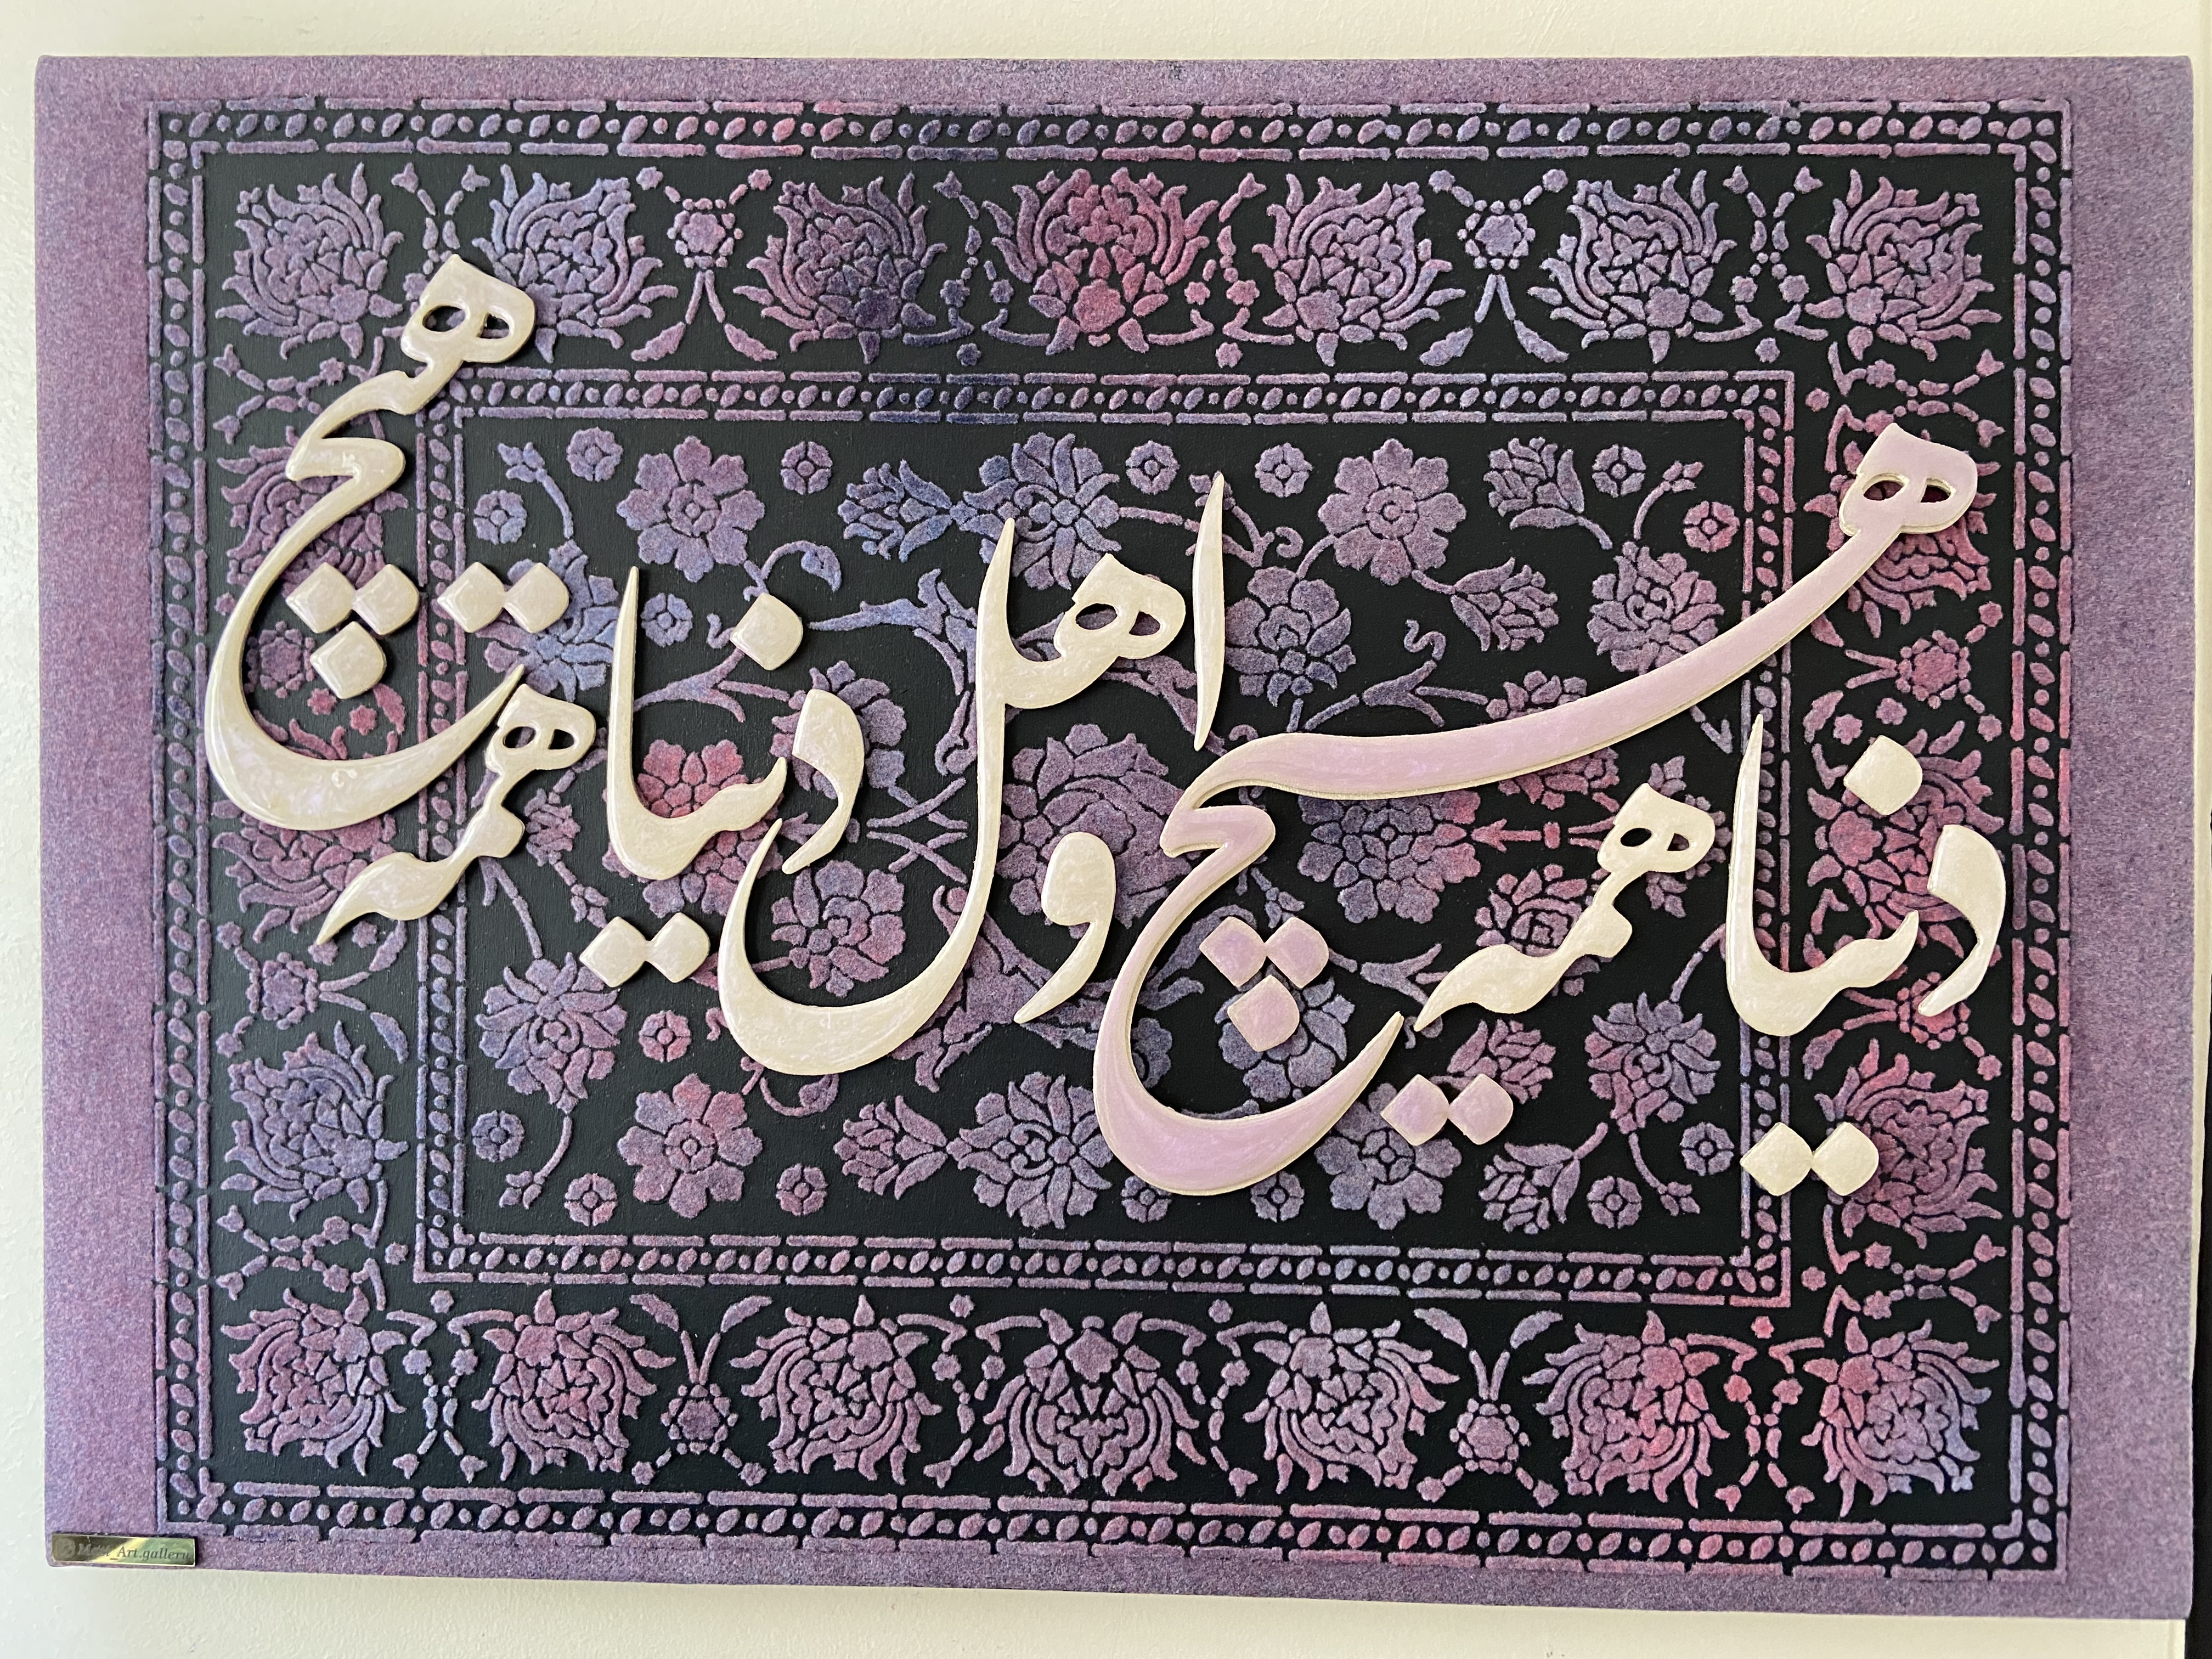 دنیا همه هیچ و اهل دنیا همه هیچ
Art.gallery